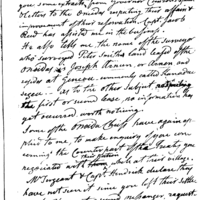 you some extracts from Governor Clinton's
Letter to the Oneidas, respecting their
improvement of their reservation. Capt. Jacob
Reed has assisted me in the business.
He also tells me, the name of the surveyor
who surveyed Peter Smiths land leased of the
Oneidas is Joseph Annin, or Annon and
resides at Geneva commonly called Kanadas
As to the other subject
the first or second lease, no information has
yet occurred, worth noticing.
Some of the Oneida Chiefs have again ap-
plied to me, to make enquiry of you con-
cerning the Counterpart of the Treaty you
negotiated with them while at their village.
Mr Sergeant & Capt. Hendrick declare they
have not seen it since you left their
request.